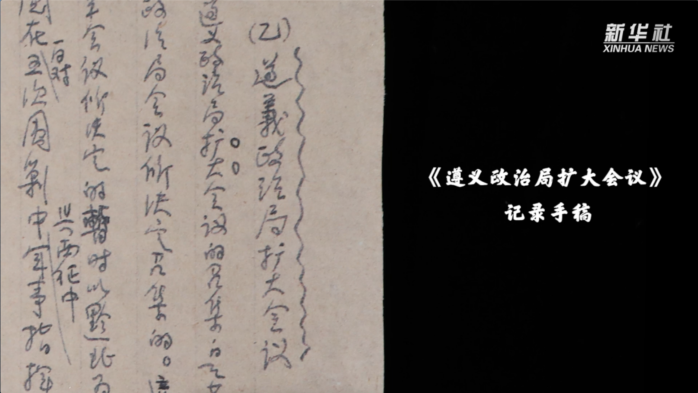 (乙)遵義政治局扩大会议
遵义政治局扩大会议的召集
政治局会议所决定召集的。
会议所决定的暂时以黔北为
在五次围剿中军事指挥
一日对
与西征中
新华社
XINHUA NEWS
《遵义政治局扩大会议》
记录手稿